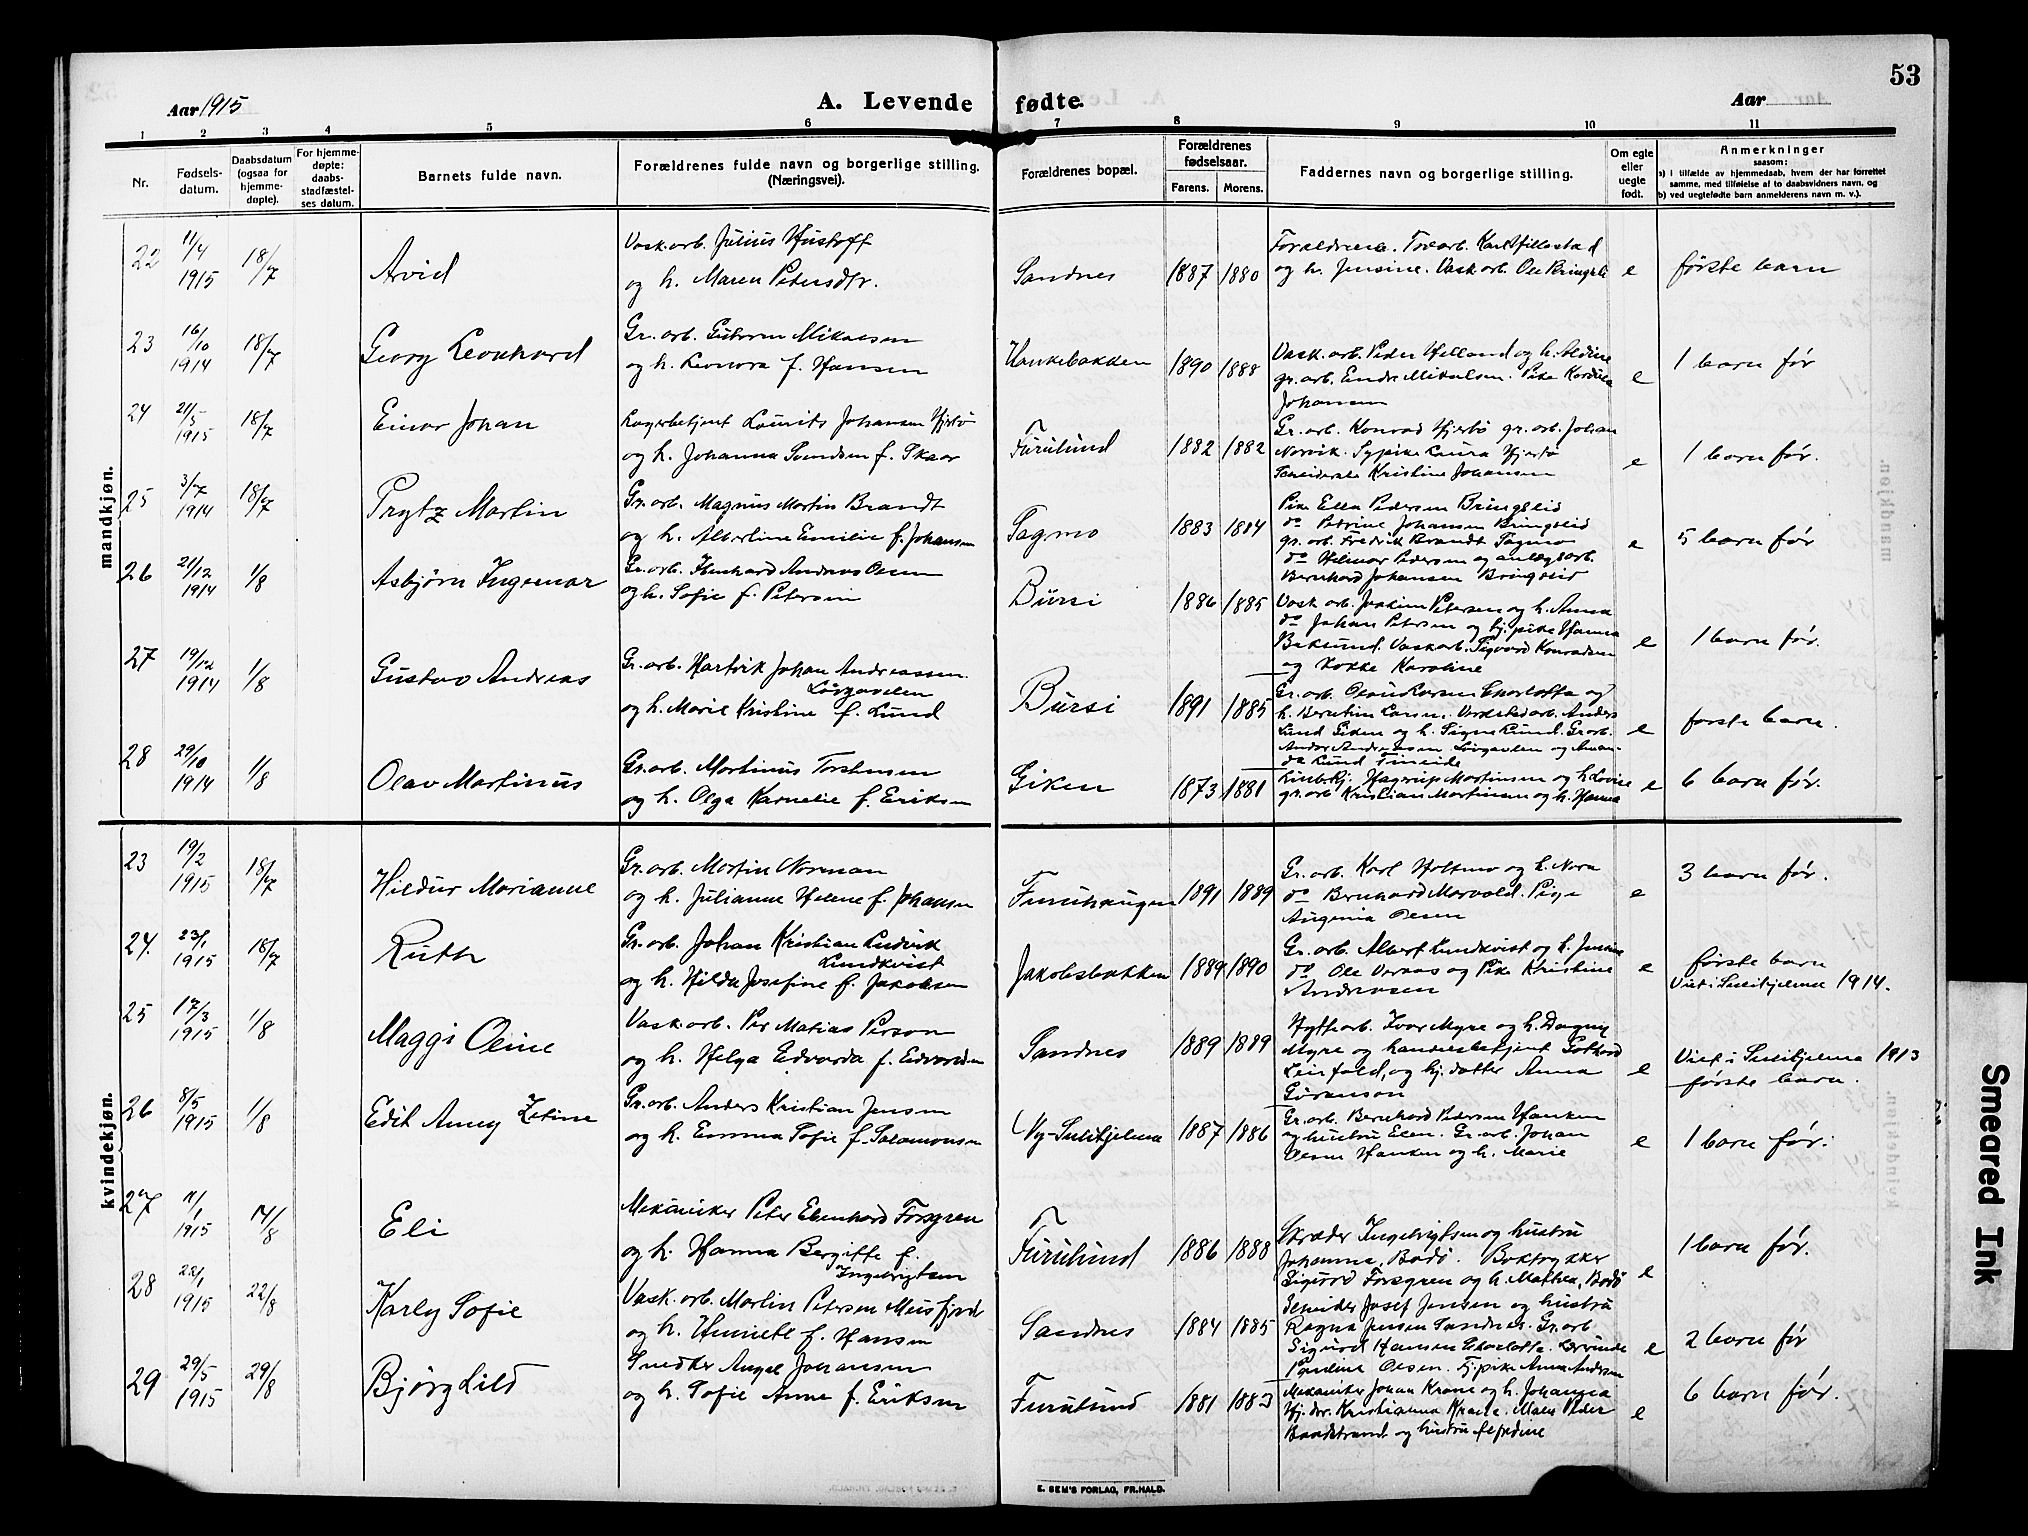 53
Aar 1915
A. Levende fødte.
Aar
1 2 3 4 5 6 7 8 9 10 11
Nr.
Fødsels-
datum.
Daabsdatum
(ogsaa for
hjemme-
døpte).
For hjemme-
døpte:
daabs-
stadfæstel-
ses datum.
Barnets fulde navn.
Forældrenes fulde navn og borgerlige stilling.
(Næringsvei).
Forældrenes bopæl.
Forældrenes
fødselsaar.
Farens. Morens.
Faddernes navn og borgerlige stilling.
Om egte
eller
uegte
født.
Anmerkninger
saasom:
a) i tilfælde av hjemmedaab, hvem der har forrettet
samme, med tilføielse af to daabsvidners navn, og
b) ved uegtefødte barn anmelderens navn m. v.).
mandkjøn.
22 11/4 1915 18/7 Arvid
Vask.arb. Julius Hustoff
og h. Maren Petersdtr.
Sandnes 1887 1880
Forældrene.
og h. Jensine. Vask arb. Ole
e første barn
23 16/10 1914 18/7 Georg Leonhard
Gr. arb. Mikalsen
og h. Leonora f. Hansen
Hankebakken 1890 1888
Vask. arb. Peder Helland og h. Aldine
gr. arb. Endre Mikalsen. Pike
Johansen
e 1 barn før
24 21/5 1915 18/7 Einar Johan
Lagerbetjent Laurits Johansen Hjertø
og h. Johanna f. Skaar
Furulund 1882 1882
Gr. arb. Konrad Hjertø gr. arb. Johan
Norvik. Sypike Laura Hjertø
Kristine Johansen
e 1 barn før.
25 3/7 1914 18/7 Prytz Martin
Gr. arb. Magnus Martin Brandt
og h. Albertine Emilie f. Johansen
Sagmo 1883 1884
Pike Ella Pedersen Bringslid
do Petrine Johansen Bringslid
gr. arb. Fredrik Brandt Sagmo
do Hilmar Pedersen og anlægsarb.
Bernhard Johansen Bringslid
e 5 barn før
26 21/12 1914 1/8 Asbjørn Ingemar
Gr. arb. Andreas Olsen
og h. Sofie f. Petersen
Bursi 1886 1885
Vask arb. Joakim Petersen og h. Anna
do Johan Petersen og hj. pike Hanna
Vaskarb. Sigvard Konradsen
og Kokke Karoline
e 1 barn før.
27 19/12 1914 1/8 Gustav Andreas
Gr. arb. Hartvik Johan Andreassen
Løvgavlen
og h. Marie Kristine f. Lund
Bursi 1891 1885
Gr. arb. Larsen Charlotta og
h. Berntine Larsen. Verkstedarb. Anders
Lund Giken og h. Signe Lund. Gr. arb.
Andor Andreassen Løvgavlen og Aman-
da Lund Fineide
e første barn.
28 29/10 1914 1/8 Olav Martinus
Gr. arb. Martinus Torstensen
og h. Olga Kornelie f. Eriksen
Giken 1873 1881
Hagrup Martinsen og h. Lovise
gr. arb Kristian Martinsen og h. Hanna
e 6 barn før.
kvindekjøn.
23 19/2 1915 18/7 Hildur Marianne
Gr. arb. Martin Norman
og h. Julianne Helene f. Johansen
Furuhaugen 1891 1889
Gr. arb. Karl Holtmo og h. Nora
do Bernhard Morvold. Pige
Augenia Olsen
e 3 barn før.
24. 23/1 1915 18/7 Ruth
Gr. arb. Johan Kristian Ludvik
Lundkvist
og h. Hilda Josefine f. Jakobsen
Jakobsbakken 1889 1890
Gr. arb. Albert Lundkvist og h. Jensine
do Ole Voraas og Pike Kristine
Andreasen
e første barn
Viet i Sulitjelma 1914.
25 17/3 1915 1/8 Maggi Oline
Vask. arb. Per Matias Person
og h. Helga Edvarda f. Edvardsen
Sandnes 1889 1889
Hytte arb. Ivar Myre og h. Dagny
Myre og handelsbetjent Gothard
Leirfald, og hj. datter Anna
Gøranson
e Viet i Sulitjelma 1913
første barn.
26 8/5 1915 1/8 Edit Anny Zetine
Gr. arb. Anders Kristian Jensen
og h. Emma Sofie f. Salomonsen
Ny-Sulitjelma 1887 1886
Gr. arb. Bernhard Pedersen Hanken
og hustru Elen. Gr. arb. Johan
Olsen Hanken og h. Marie
e 1 barn før.
27 11/1 1915 14/8 Eli
Mekaniker Peter Edenhard Forsgren
og h. Hanna Bergitte f.
Ingebrigtsen
Furulund 1886 1888
Skræder Ingebrigtsen og hustru
Johanna, Bodø. Boktrykker
Sigurd Forsgren og h. Mathea, Bodø
e 1 barn før.
28 22/1 1915 22/8 Karly Sofie
Vask. arb. Martin Petersen Misfjord
og h. f. Hansen
Sandnes 1884 1885
Josef Jensen og hustru
Ragna Jensen Sandnes. Gr. arb
Sigurd Hansen Charlotta.
Pauline Olsen. Tj. pike Anna Andersen
e 2 barn før
29 29/5 1915 29/8 Bjørg Lild
Snedker Angel Johansen
og h. Sofie Anne f. Eriksen
Furulund 1881 1883
Mekaniker Johan Krane og h. Johanna
Hj. dtr. Kristianna Krane. Maler Peder
Baadstrand og hustru
e 6 barn før.
E. SEM'S FORLAG, FR.HALD.
Smeared Ink